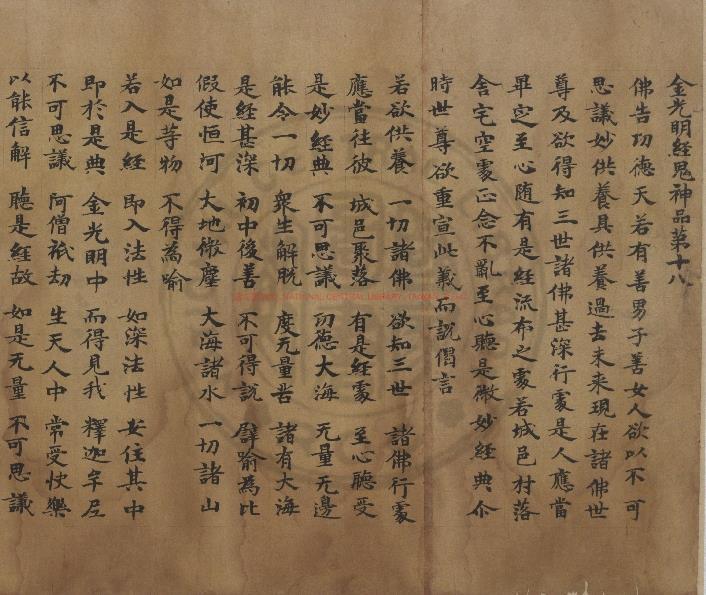 金光明經鬼神品第十八
佛告功德天若有善男子善女人欲以不可
思議妙供養具供養過去未来現在諸佛世
尊及欲得知三世諸佛甚深行處是人應當
畢定至心随有是經流布之處若城邑村落
舎宅空處正念不亂至心聽是微妙經典尒
時世尊欲重宣此義而說偈言
若欲供養 一切諸佛 欲知三世 諸佛行處
應當往彼 城邑聚落 有是經處 至心聽受
是妙經典 不可思議 功德大海 无量无邊
能令一切 衆生解脫 度无量苦 諸有大海
是經甚深 初中後善 不可得說 譬喻為比
假使恒河 大地微塵 大海諸水 一切諸山
如是等物 不得為喻
若入是經 即入法性 如深法性 安住其中
即於是典 金光明中 而得見我 釋迦牟尼
不可思議 阿僧祇劫 生天人中 常受快樂
以能信解 聽是經故 如是无量 不可思議
NATIONAL CENTRAL LIBRARY, TAIWAN